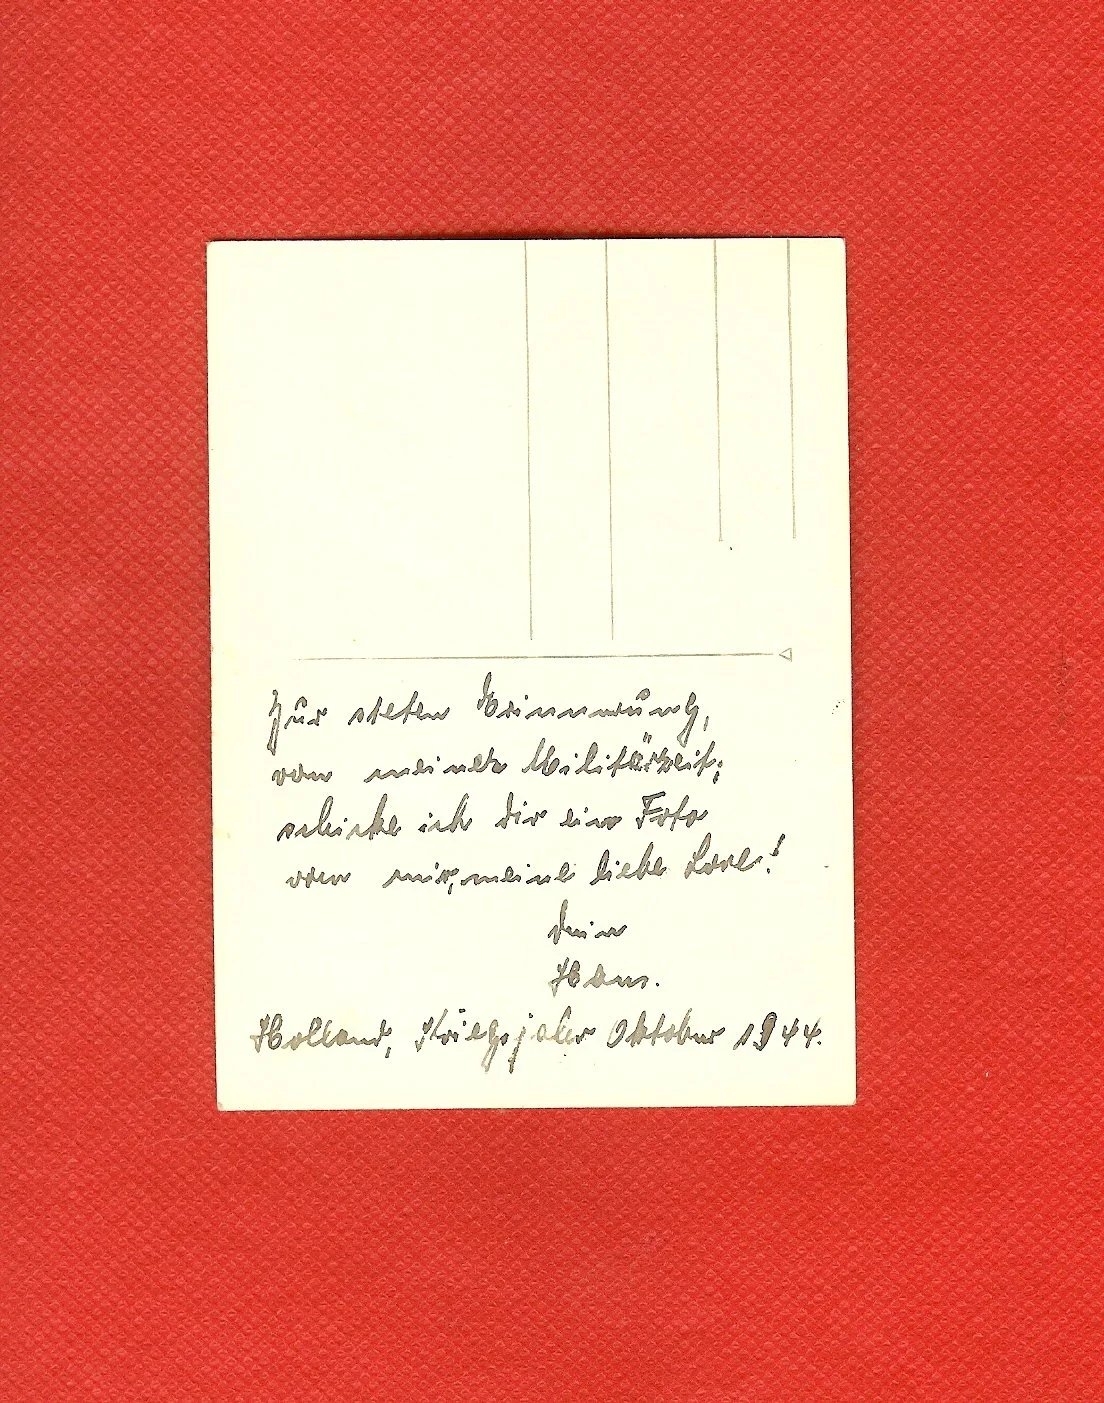 Zur steten Erinnerung,
von meiner Militärzeit;
schicke ich dir ein Foto
von mir, meine liebe Lore!
Dein
Hans.
Holland, Kriegsjahr Oktober 1944.